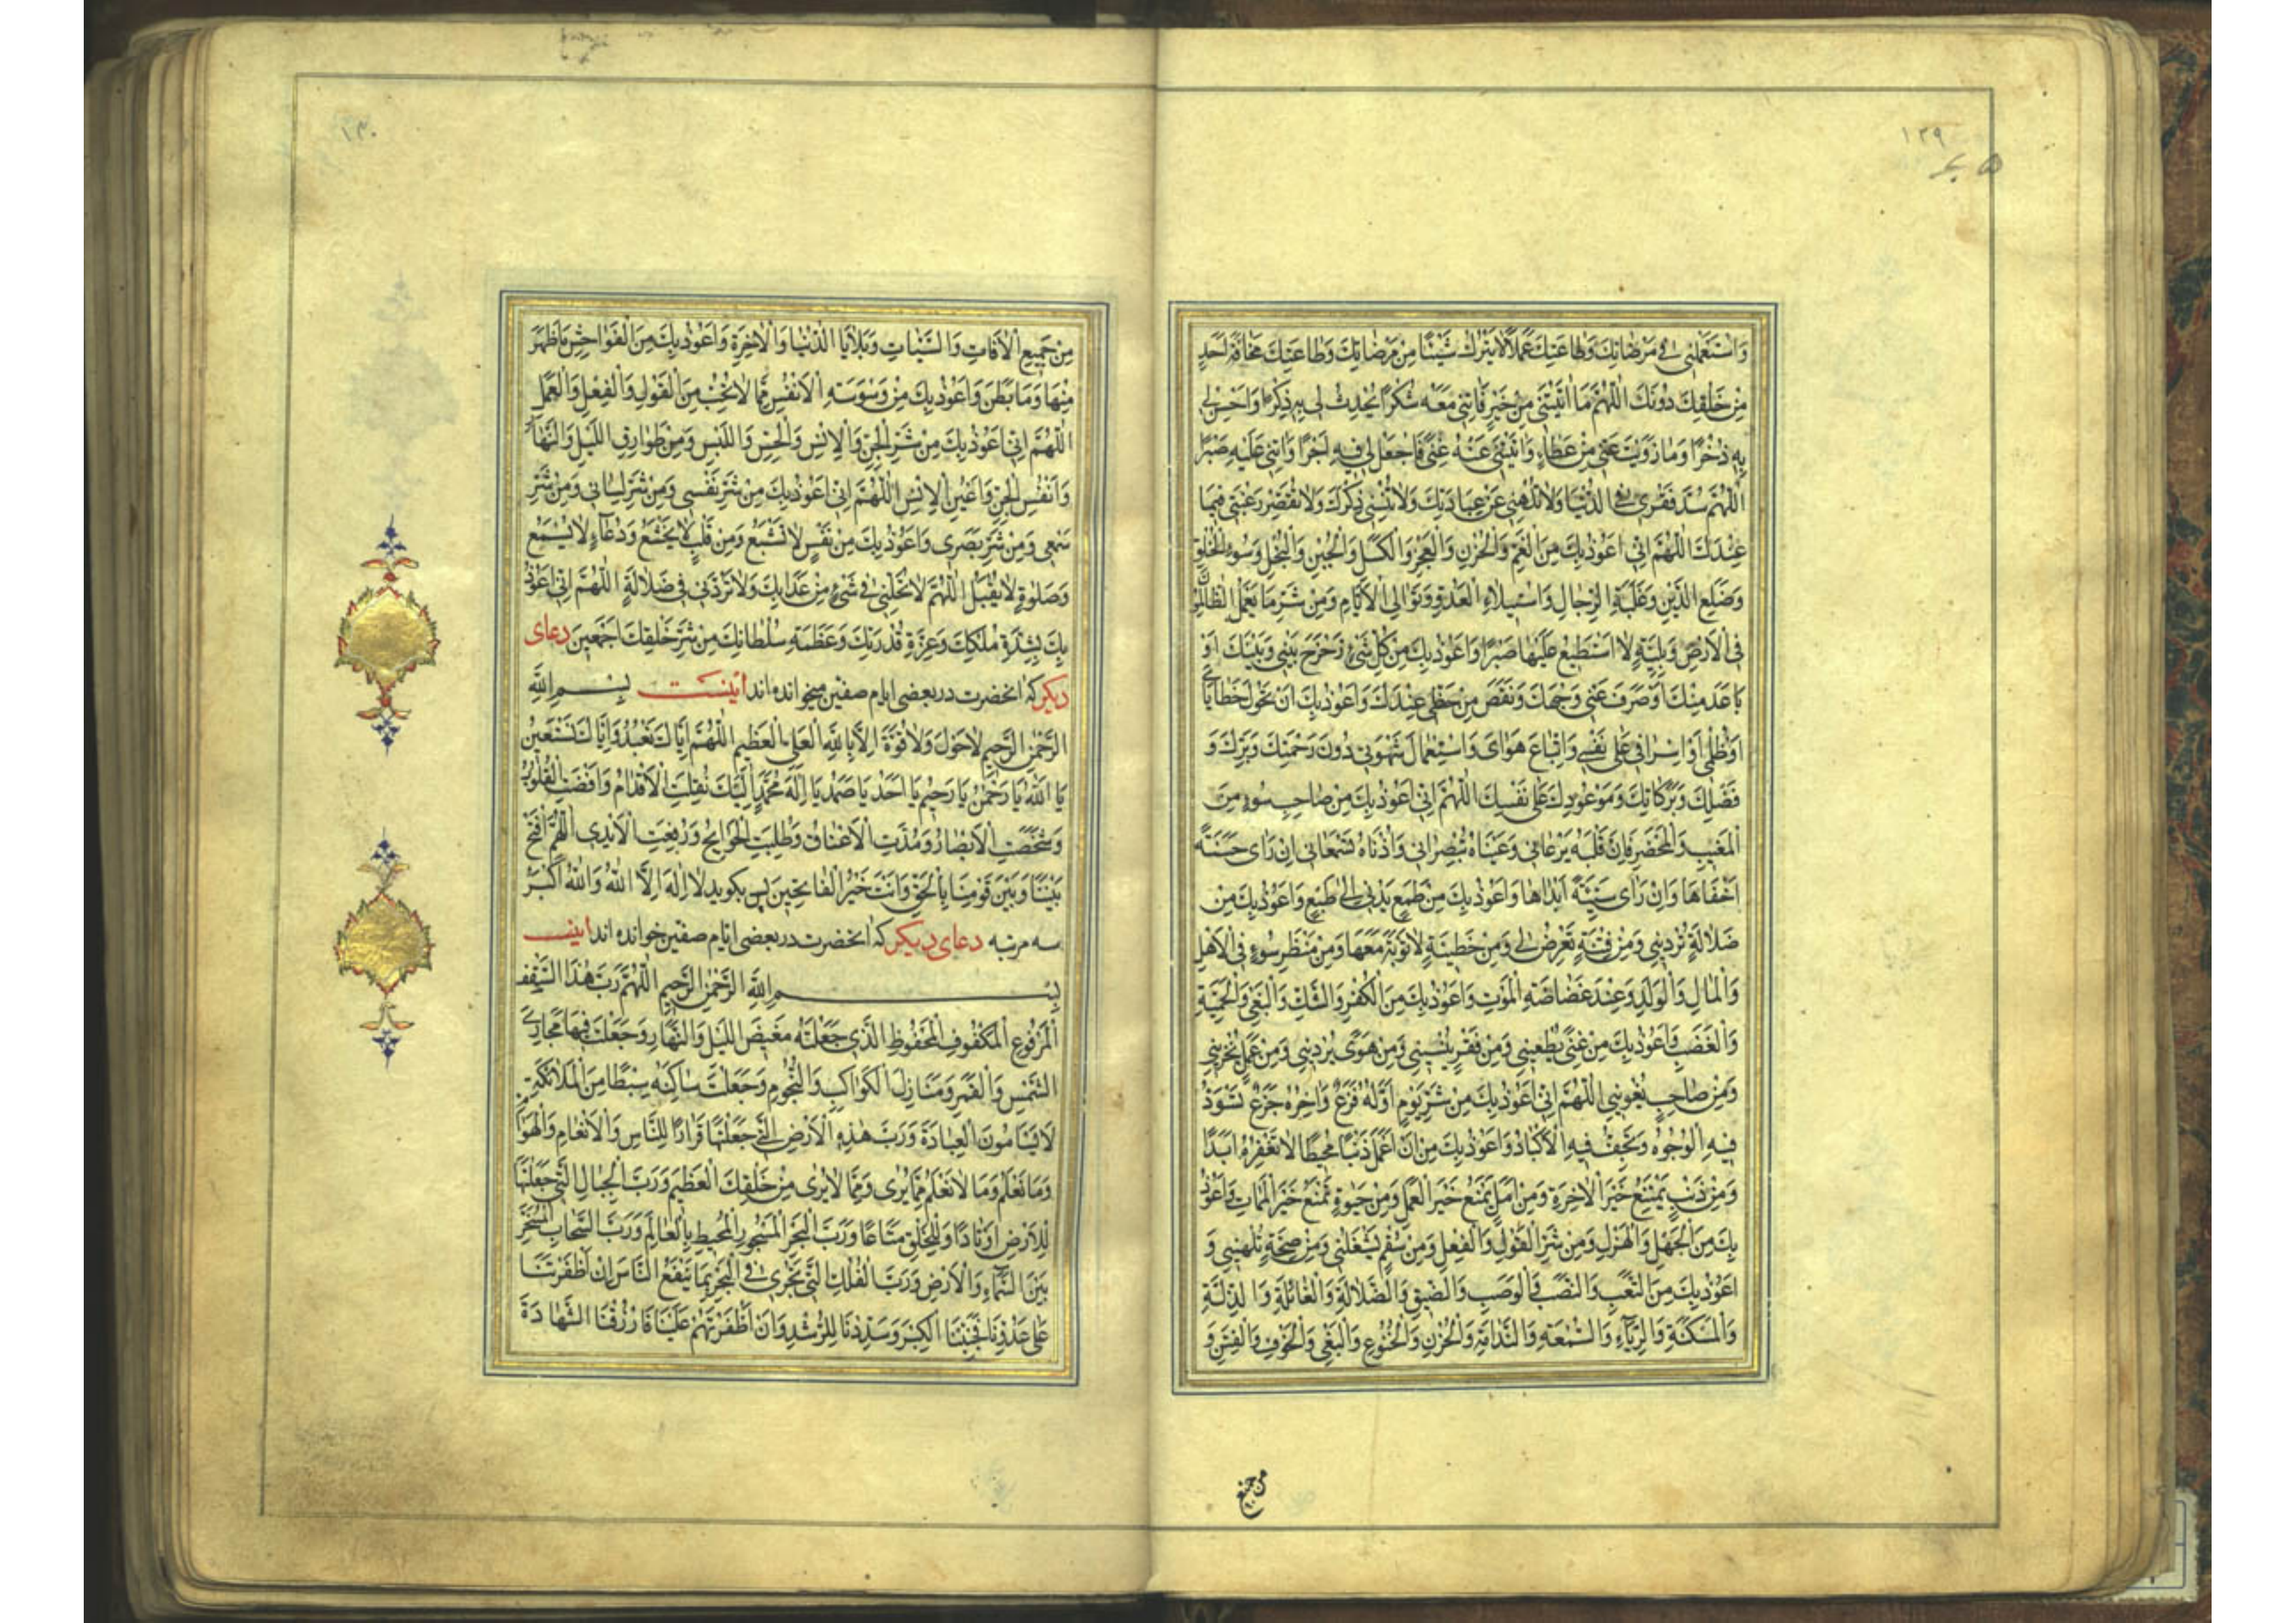 ١٣٩
وَاسْتَعْمِلْنِي فِي مَرْضَاتِكَ وَطَاعَتِكَ عَمَلًا لَا يَتْرُكُ شَيْئًا مِنْ مَرْضَاتِكَ وَطَاعَتِكَ مَخَافَةَ اَحَدٍ
مِنْ خَلْقِكَ دُونَكَ اَللّٰهُمَّ مَا اٰتَيْتَنِي مِنْ خَيْرٍ فَاٰتِنِي مَعَهُ شُكْرًا يُحْدِثُ لِي بِهِ ذِكْرًا وَاَحْسِنْ لِي
بِهِ ذُخْرًا وَمَا زَوَيْتَ عَنِّي مِنْ عَطَاءٍ وَاٰتَيْتَنِي عَنْهُ غِنًى فَاجْعَلْ لِي فِيهِ اَجْرًا وَاٰتِنِي عَلَيْهِ صَبْرًا
اَللّٰهُمَّ سُدَّ فَقْرِي فِي الدُّنْيَا وَلَا تُلْهِنِي عَنْ عِبَادَتِكَ وَلَا تُنْسِنِي ذِكْرَكَ وَلَا تُقَصِّرْ رَغْبَتِي فِيمَا
عِنْدَكَ اَللّٰهُمَّ اِنِّي اَعُوذُ بِكَ مِنَ الْغَمِّ وَالْحُزْنِ وَالْعَجْزِ وَالْكَسَلِ وَالْجُبْنِ وَالْبُخْلِ وَسُوءِ الْخُلُقِ
وَضَلَعِ الدَّيْنِ وَغَلَبَةِ الرِّجَالِ وَاسْتِيلَاءِ الْعَدُوِّ وَتَوَالِي الْاَيَّامِ وَمِنْ شَرِّ مَا يَعْمَلُ الظَّالِمُونَ
فِي الْاَرْضِ وَبَلِيَّةٍ لَا اَسْتَطِيعُ عَلَيْهَا صَبْرًا وَاَعُوذُ بِكَ مِنْ كُلِّ شَيْءٍ زَحْزَحَ بَيْنِي وَبَيْنَكَ اَوْ
بَاعَدَ مِنْكَ اَوْ صَرَفَ عَنِّي وَجْهَكَ وَنَقَصَ مِنْ حَظِّي عِنْدَكَ وَاَعُوذُ بِكَ اَنْ تَحُولَ خَطَايَايَ
اَوْ ظُلْمِي اَوْ اِسْرَافِي عَلَى نَفْسِي وَاتِّبَاعُ هَوَايَ وَاسْتِعْمَالُ شَهْوَتِي دُونَ رَحْمَتِكَ وَبِرِّكَ وَ
فَضْلِكَ وَبَرَكَاتِكَ وَمَوْعُودِكَ عَلَى نَفْسِكَ اَللّٰهُمَّ اِنِّي اَعُوذُ بِكَ مِنْ صَاحِبِ سُوءٍ مِنَ
الْمَغِيبِ وَالْمَحْضَرِ فَاِنَّ قَلْبَهُ يَرْعَانِي وَعَيْنَاهُ تُبْصِرَانِي وَاُذُنَاهُ تَسْمَعَانِي اِنْ رَاٰى حَسَنَةً
اَخْفَاهَا وَاِنْ رَاٰى سَيِّئَةً اَبْدَاهَا وَاَعُوذُ بِكَ مِنْ طَمَعٍ يُدْنِي اِلَى طَبَعٍ وَاَعُوذُ بِكَ مِنْ
ضَلَالَةٍ تُرْدِينِي وَمِنْ فِتْنَةٍ تَعْرِضُ لِي وَمِنْ خَطِيئَةٍ لَا تَوْبَةَ مَعَهَا وَمِنْ مَنْظَرِ سُوءٍ فِي الْاَهْلِ
وَالْمَالِ وَالْوَلَدِ وَعِنْدَ غَضَاضَةِ الْمَوْتِ وَاَعُوذُ بِكَ مِنَ الْكُفْرِ وَالشَّكِّ وَالْبَغْيِ وَالْحَمِيَّةِ
وَالْغَضَبِ وَاَعُوذُ بِكَ مِنْ غِنًى يُطْغِينِي وَمِنْ فَقْرٍ يُنْسِينِي وَمِنْ هَوًى يُرْدِينِي وَمِنْ عَمَلٍ يُخْزِينِي
وَمِنْ صَاحِبٍ يُغْوِينِي اَللّٰهُمَّ اِنِّي اَعُوذُ بِكَ مِنْ شَرِّ يَوْمٍ اَوَّلُهُ فَزَعٌ وَاٰخِرُهُ جَزَعٌ تَسْوَدُّ
فِيهِ الْوُجُوهُ وَتَجِفُّ فِيهِ الْاَكْبَادُ وَاَعُوذُ بِكَ مِنْ اَنْ اَعْمَلَ ذَنْبًا مُحِيطًا لَا تَغْفِرُهُ اَبَدًا
وَمِنْ ذَنْبٍ يَمْنَعُ خَيْرَ الْاٰخِرَةِ وَمِنْ اَمَلٍ يَمْنَعُ خَيْرَ الْعَمَلِ وَمِنْ حَيٰوةٍ تَمْنَعُ خَيْرَ الْمَمَاتِ وَاَعُوذُ
بِكَ مِنَ الْجَهْلِ وَالْهَزْلِ وَمِنْ شَرِّ الْقَوْلِ وَالْفِعْلِ وَمِنْ سُقْمٍ يَشْغَلُنِي وَمِنْ صِحَّةٍ تُلْهِينِي وَ
اَعُوذُ بِكَ مِنَ التَّعَبِ وَالنَّصَبِ وَالْوَصَبِ وَالضِّيقِ وَالضَّلَالَةِ وَالْغَائِلَةِ وَالذِّلَّةِ
وَالْمَسْكَنَةِ وَالرِّيَاءِ وَالسُّمْعَةِ وَالنَّدَامَةِ وَالْحُزْنِ وَالْخُشُوعِ وَالْبَغْيِ وَالْخَوْفِ وَالْفِتَنِ وَ
من جميع
١٤٠
مِنْ جَمِيعِ الْاٰفَاتِ وَالسَّيِّئَاتِ وَبَلَايَا الدُّنْيَا وَالْاٰخِرَةِ وَاَعُوذُ بِكَ مِنَ الْفَوَاحِشِ مَا ظَهَرَ
مِنْهَا وَمَا بَطَنَ وَاَعُوذُ بِكَ مِنْ وَسْوَسَةِ الْاَنْفُسِ مِمَّا لَا تُحِبُّ مِنَ الْقَوْلِ وَالْفِعْلِ وَالْعَمَلِ
اَللّٰهُمَّ اِنِّي اَعُوذُ بِكَ مِنْ شَرِّ الْجِنِّ وَالْاِنْسِ وَالْحِسِّ وَاللَّبْسِ وَمِنْ طَوَارِقِ اللَّيْلِ وَالنَّهَارِ
وَاَنْفُسِ الْجِنِّ وَاَعْيُنِ الْاِنْسِ اَللّٰهُمَّ اِنِّي اَعُوذُ بِكَ مِنْ شَرِّ نَفْسِي وَمِنْ شَرِّ لِسَانِي وَمِنْ شَرِّ
سَمْعِي وَمِنْ شَرِّ بَصَرِي وَاَعُوذُ بِكَ مِنْ نَفْسٍ لَا تَشْبَعُ وَمِنْ قَلْبٍ لَا يَخْشَعُ وَدُعَاءٍ لَا يُسْمَعُ
وَصَلٰوةٍ لَا تُقْبَلُ اَللّٰهُمَّ لَا تَجْعَلْنِي فِي شَيْءٍ مِنْ عَذَابِكَ وَلَا تَرُدَّنِي فِي ضَلَالَةٍ اَللّٰهُمَّ اِنِّي اَعُوذُ
بِكَ بِشِدَّةِ مُلْكِكَ وَعِزَّةِ قُدْرَتِكَ وَعَظَمَةِ سُلْطَانِكَ مِنْ شَرِّ خَلْقِكَ اَجْمَعِينَ دعای
دیگر که انحضرت در بعضی ایام صفین میخوانده اند اینست بِسْمِ اللهِ
الرَّحْمٰنِ الرَّحِيمِ لَا حَوْلَ وَلَا قُوَّةَ اِلَّا بِاللهِ الْعَلِيِّ الْعَظِيمِ اَللّٰهُمَّ اِيَّاكَ نَعْبُدُ وَاِيَّاكَ نَسْتَعِينُ
يَا اَللهُ يَا رَحْمٰنُ يَا رَحِيمُ يَا اَحَدُ يَا صَمَدُ يَا اِلٰهَ مُحَمَّدٍ اِلَيْكَ نُقِلَتِ الْاَقْدَامُ وَاَفْضَتِ الْقُلُوبُ
وَشَخَصَتِ الْاَبْصَارُ وَمُدَّتِ الْاَعْنَاقُ وَطُلِبَتِ الْحَوَائِجُ وَرُفِعَتِ الْاَيْدِي اَللّٰهُمَّ افْتَحْ
بَيْنَنَا وَبَيْنَ قَوْمِنَا بِالْحَقِّ وَاَنْتَ خَيْرُ الْفَاتِحِينَ پس بگوید لَا اِلٰهَ اِلَّا اللهُ وَاللهُ اَكْبَرُ
سه مرتبه دعای دیگر که انحضرت در بعضی ایام صفین خوانده اند اینست
بِسْمِ اللهِ الرَّحْمٰنِ الرَّحِيمِ اَللّٰهُمَّ رَبَّ هٰذَا السَّقْفِ
الْمَرْفُوعِ الْمَكْفُوفِ الْمَحْفُوظِ الَّذِي جَعَلْتَهُ مَغِيضَ اللَّيْلِ وَالنَّهَارِ وَجَعَلْتَ فِيهَا مَجَارِيَ
الشَّمْسِ وَالْقَمَرِ وَمَنَازِلَ الْكَوَاكِبِ وَالنُّجُومِ وَجَعَلْتَ سَاكِنَهُ سِبْطًا مِنَ الْمَلَائِكَةِ
لَا يَسْاَمُونَ الْعِبَادَةَ وَرَبَّ هٰذِهِ الْاَرْضِ الَّتِي جَعَلْتَهَا قَرَارًا لِلنَّاسِ وَالْاَنْعَامِ وَالْهَوَامِّ
وَمَا نَعْلَمُ وَمَا لَا نَعْلَمُ مِمَّا يُرٰى وَمِمَّا لَا يُرٰى مِنْ خَلْقِكَ الْعَظِيمِ وَرَبَّ الْجِبَالِ الَّتِي جَعَلْتَهَا
لِلْاَرْضِ اَوْتَادًا وَلِلْخَلْقِ مَتَاعًا وَرَبَّ الْبَحْرِ الْمَسْجُورِ الْمُحِيطِ بِالْعَالَمِ وَرَبَّ السَّحَابِ الْمُسَخَّرِ
بَيْنَ السَّمَاءِ وَالْاَرْضِ وَرَبَّ الْفُلْكِ الَّتِي تَجْرِي فِي الْبَحْرِ بِمَا يَنْفَعُ النَّاسَ اِنْ اَظْفَرْتَنَا
عَلَى عَدُوِّنَا فَجَنِّبْنَا الْكِبْرَ وَسَدِّدْنَا لِلرُّشْدِ وَاِنْ اَظْفَرْتَهُمْ عَلَيْنَا فَارْزُقْنَا الشَّهَادَةَ